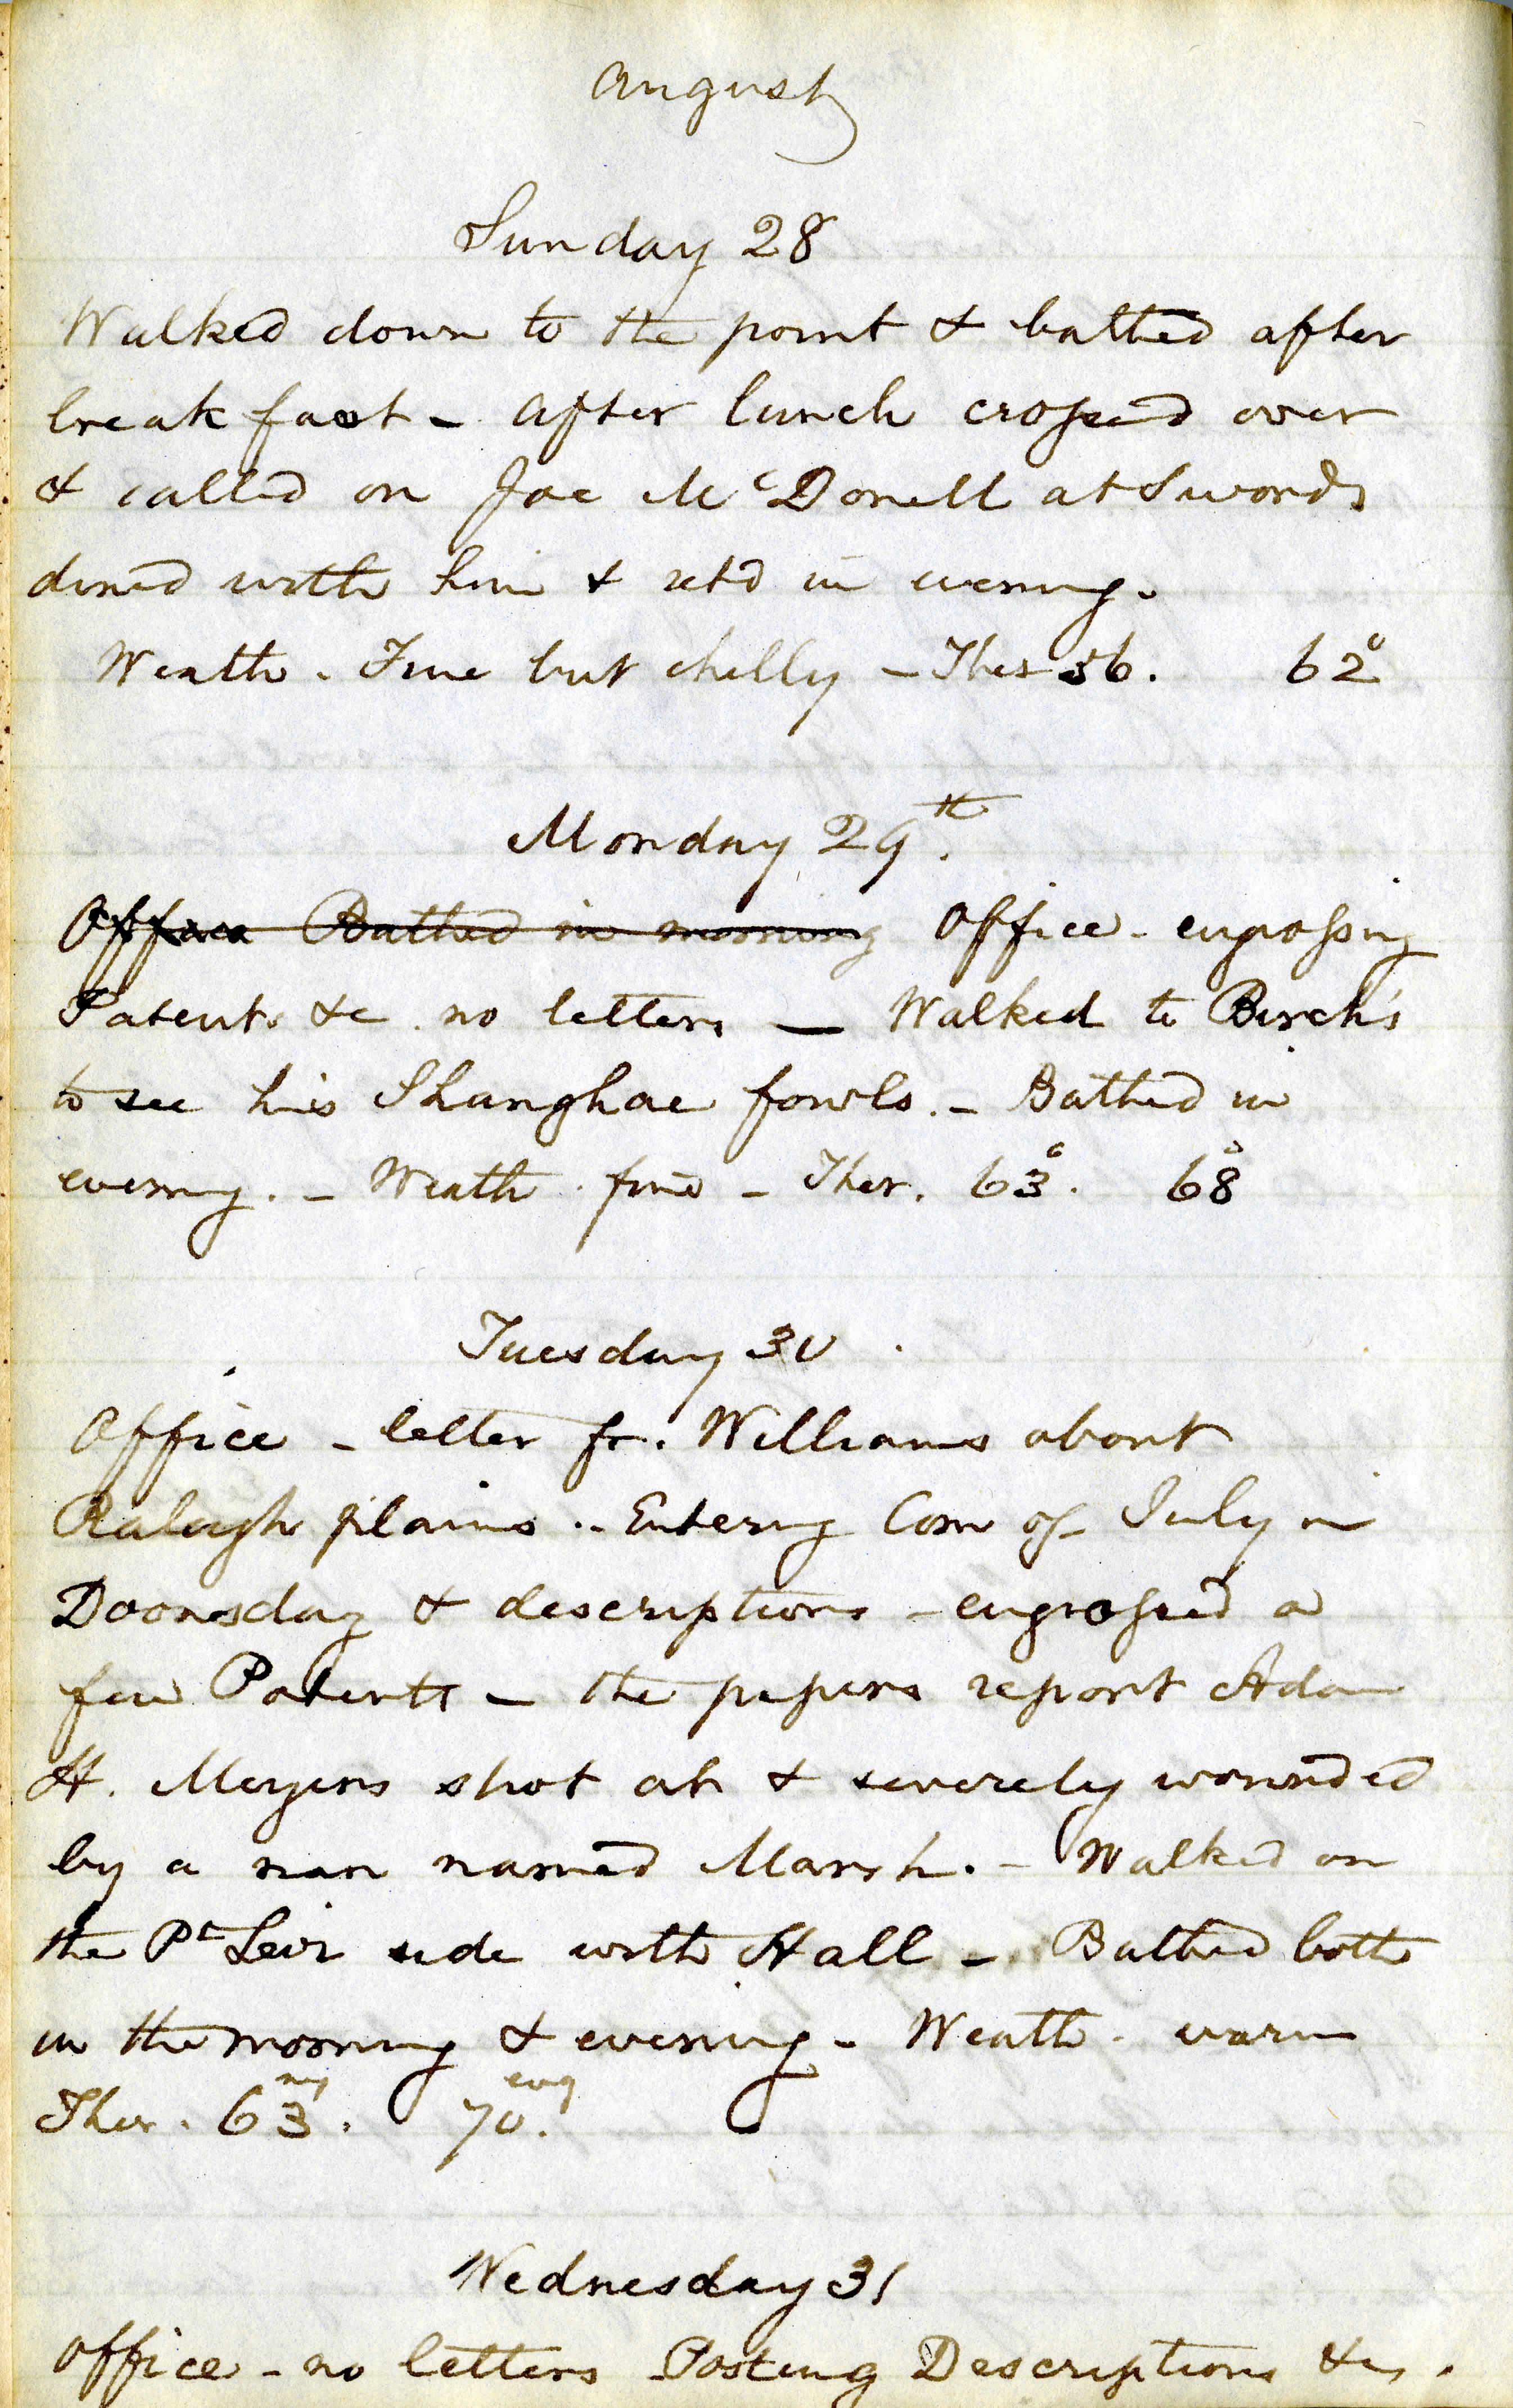 August
Sunday 28
Walked down to the point & bathed after
breakfast - After lunch crossed over
& called on Jae McDonell at Swords
dined with him & retd in evening.
Weath. Fine but chilly - Ther 56. 62°
Monday 29th.
Office Bathed in morning Office - engrossing
Patents &c. no letters — Walked to Birch's
to see his Shanghae fowls. - Bathed in
evening. - Weath. fine - Ther. 63°. 68°
Tuesday 30.
Office - letter fr. Williams about
Raleigh plains. - Entering Com of July in
Doomsday & descriptions - engrossed a
few Patents - the papers report Adam
H. Meyers shot at & severely wounded
by a man named Marsh. - Walked on
the Pt Levi side with Hall - Bathed both
in the morning & evening - Weath. warm
Ther. 63 mg. 70 evg.
Wednesday 31
Office - no letters Posting Descriptions &c.